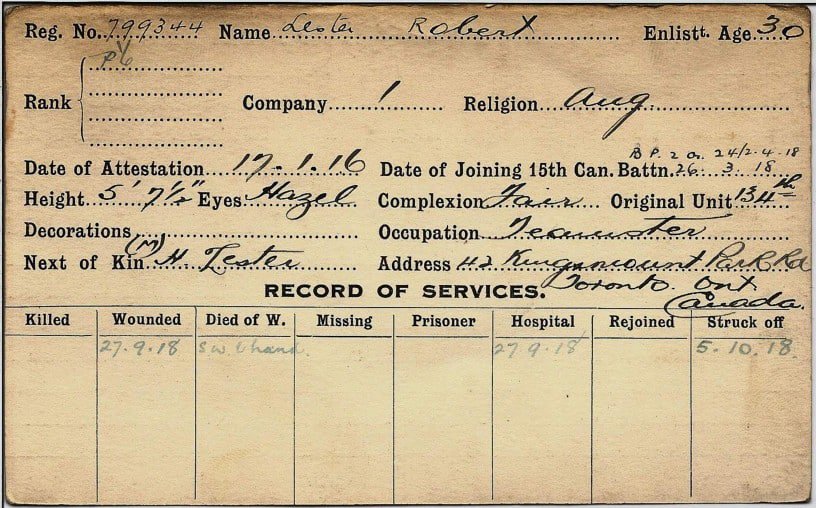 Reg. No. 799344 Name Lester Robert Enlistt. Age 30
Rank Company 1 Religion Ang
B P. 2 Or. 24/2.4.18
Date of Attestation 17.1.16 Date of Joining 15th Can. Battn. 26. 3. 18.
Height 5' 7½" Eyes Hazel Complexion Fair Original Unit 134th
Decorations Occupation Teamster
Next of Kin (M) H. Lester Address 42 Kingsmount Park Rd
Toronto. Ont
Canada.
RECORD OF SERVICES.
Killed Wounded Died of W. Missing Prisoner Hospital Rejoined Struck off
27.9.18 S W L hand 27.9.18 5.10.18.